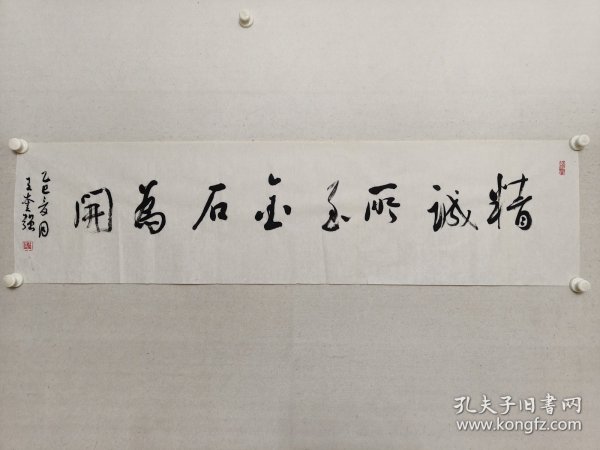 精誠所至金石為開
乙巳夏月
王奎强
孔夫子旧书网
www.kongfz.com